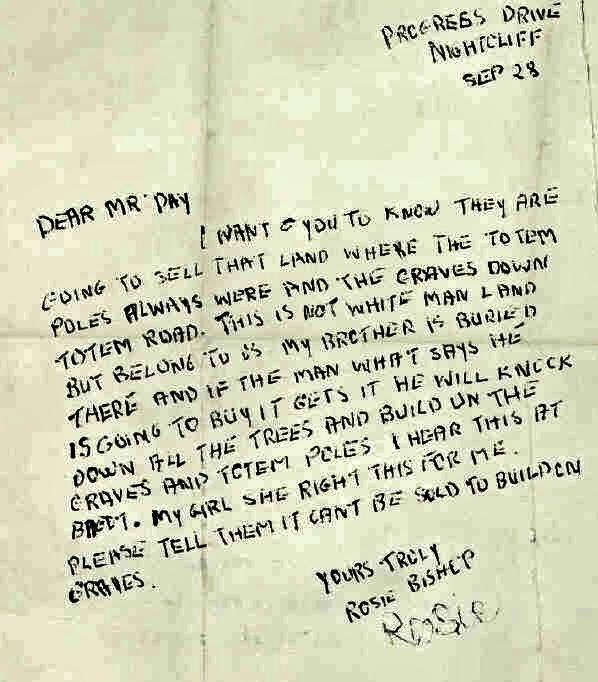 PROGRESS DRIVE
NIGHTCLIFF
SEP 28
DEAR MR DAY
I WANT YOU TO KNOW THEY ARE
GOING TO SELL THAT LAND WHERE THE TOTEM
POLES ALWAYS WERE AND THE GRAVES DOWN
TOTEM ROAD. THIS IS NOT WHITE MAN LAND
BUT BELONG TO US MY BROTHER IS BURIED
THERE AND IF THE MAN WHAT SAYS HE
IS GOING TO BUY IT GETS IT HE WILL KNOCK
DOWN ALL THE TREES AND BUILD ON THE
GRAVES AND TOTEM POLES I HEAR THIS AT
BAGOT. MY GIRL SHE RIGHT THIS FOR ME.
PLEASE TELL THEM IT CANT BE SOLD TO BUILD ON
GRAVES.
YOURS TRULY
ROSIE BISHOP
Rosie